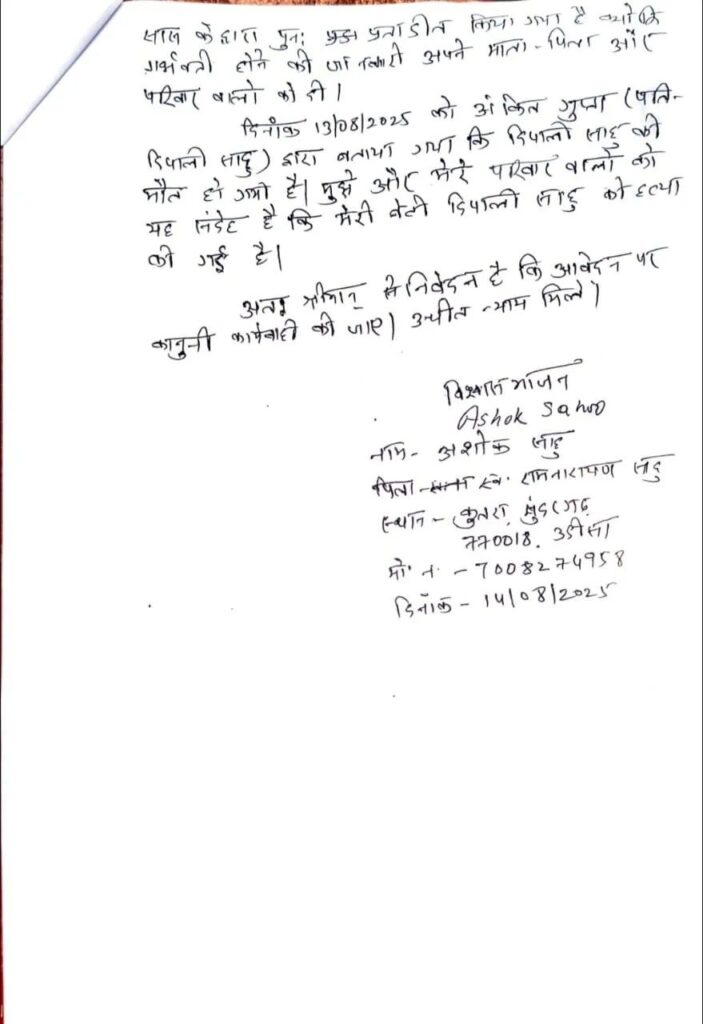 सास के द्वारा पुनः प्रताडीत किया गया है क्योंकि
गर्भवती होने की जानकारी अपने माता-पिता और
परिवार वालो को दी।
दिनाँक 13/08/2025 को अंकित गुप्ता (पति-
दिपाली साहु) द्वारा बताया गया कि दिपाली साहु की
मौत हो गयी है। मुझे और मेरे परिवार वालो को
यह संदेह है कि मेरी बेटी दिपाली साहु की हत्या
की गई है।
अतः श्रीमान् से निवेदन है कि आवेदन पर
कानुनी कार्यवाही की जाए। उचीत न्याय मिले।
विश्वासभाजन
Ashok Sahoo
नाम- अशोक साहु
पिता- स्व. रामनारायण साहु
स्थान - कुतरा, सुंदरगढ़
770018. उडीसा
मो. न. - 7008274958
दिनाँक - 14/08/2025